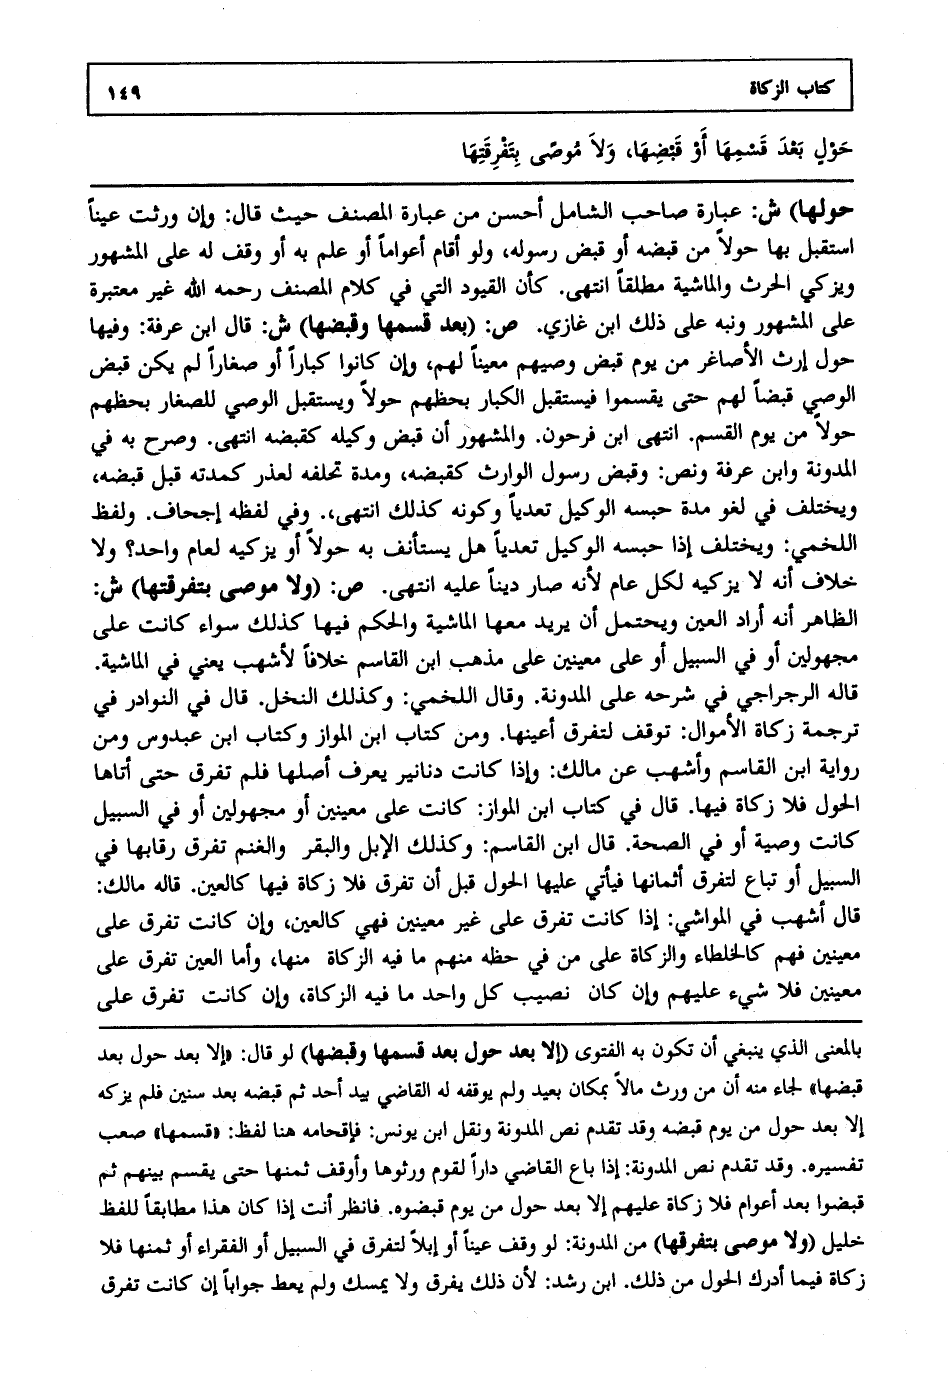 كتاب الزكاة ١٤٩
حَوْلٍ بَعْدَ قَسْمِهَا أَوْ قَبْضِهَا، وَلاَ مُوصًى بِتَفْرِقَتِهَا
حولها) ش: عبارة صاحب الشامل أحسن من عبارة المصنف حيث قال: وإن ورثت عيناً
استقبل بها حولاً من قبضه أو قبض رسوله، ولو أقام أعواماً أو علم به أو وقف له على المشهور
ويزكي الحرث والماشية مطلقاً انتهى. كأن القيود التي في كلام المصنف رحمه الله غير معتبرة
على المشهور ونبه على ذلك ابن غازي. ص: (بعد قسمها وقبضها) ش: قال ابن عرفة: وفيها
حول إرث الأصاغر من يوم قبض وصيهم معيناً لهم، وإن كانوا كباراً أو صغاراً لم يكن قبض
الوصي قبضاً لهم حتى يقسموا فيستقبل الكبار بحظهم حولاً ويستقبل الوصي للصغار بحظهم
حولاً من يوم القسم. انتهى ابن فرحون. والمشهور أن قبض وكيله كقبضه انتهى. وصرح به في
المدونة وابن عرفة ونص: وقبض رسول الوارث كقبضه، ومدة تخلفه لعذر كمدته قبل قبضه،
ويختلف في لغو مدة حبسه الوكيل تعدياً وكونه كذلك انتهى،. وفي لفظه إجحاف. ولفظ
اللخمي: ويختلف إذا حبسه الوكيل تعدياً هل يستأنف به حولاً أو يزكيه لعام واحد؟ ولا
خلاف أنه لا يزكيه لكل عام لأنه صار ديناً عليه انتهى. ص: (ولا موصى بتفرقتها) ش:
الظاهر أنه أراد العين ويحتمل أن يريد معها الماشية والحكم فيها كذلك سواء كانت على
مجهولين أو في السبيل أو على معينين على مذهب ابن القاسم خلافاً لأشهب يعني في الماشية.
قاله الرجراجي في شرحه على المدونة. وقال اللخمي: وكذلك النخل. قال في النوادر في
ترجمة زكاة الأموال: توقف لتفرق أعينها. ومن كتاب ابن المواز وكتاب ابن عبدوس ومن
رواية ابن القاسم وأشهب عن مالك: وإذا كانت دنانير يعرف أصلها فلم تفرق حتى أتاها
الحول فلا زكاة فيها. قال في كتاب ابن المواز: كانت على معينين أو مجهولين أو في السبيل
كانت وصية أو في الصحة. قال ابن القاسم: وكذلك الإبل والبقر والغنم تفرق رقابها في
السبيل أو تباع لتفرق أثمانها فيأتي عليها الحول قبل أن تفرق فلا زكاة فيها كالعين. قاله مالك:
قال أشهب في المواشي: إذا كانت تفرق على غير معينين فهي كالعين، وإن كانت تفرق على
معينين فهم كالخلطاء والزكاة على من في حظه منهم ما فيه الزكاة منها، وأما العين تفرق على
معينين فلا شيء عليهم وإن كان نصيب كل واحد ما فيه الزكاة، وإن كانت تفرق على
بالمعنى الذي ينبغي أن تكون به الفتوى (إلا بعد حول بعد قسمها وقبضها) لو قال: «إلا بعد حول بعد
قبضها» لجاء منه أن من ورث مالاً بمكان بعيد ولم يوقفه له القاضي بيد أحد ثم قبضه بعد سنين فلم يزكه
إلا بعد حول من يوم قبضه وقد تقدم نص المدونة ونقل ابن يونس: فإقحامه هنا لفظ: «قسمها» صعب
تفسيره. وقد تقدم نص المدونة: إذا باع القاضي داراً لقوم ورثوها وأوقف ثمنها حتى يقسم بينهم ثم
قبضوا بعد أعوام فلا زكاة عليهم إلا بعد حول من يوم قبضوه. فانظر أنت إذا كان هذا مطابقاً للفظ
خليل (ولا موصى بتفرقها) من المدونة: لو وقف عيناً أو إبلاً لتفرق في السبيل أو الفقراء أو ثمنها فلا
زكاة فيما أدرك الحول من ذلك. ابن رشد: لأن ذلك يفرق ولا يمسك ولم يعط جواباً إن كانت تفرق